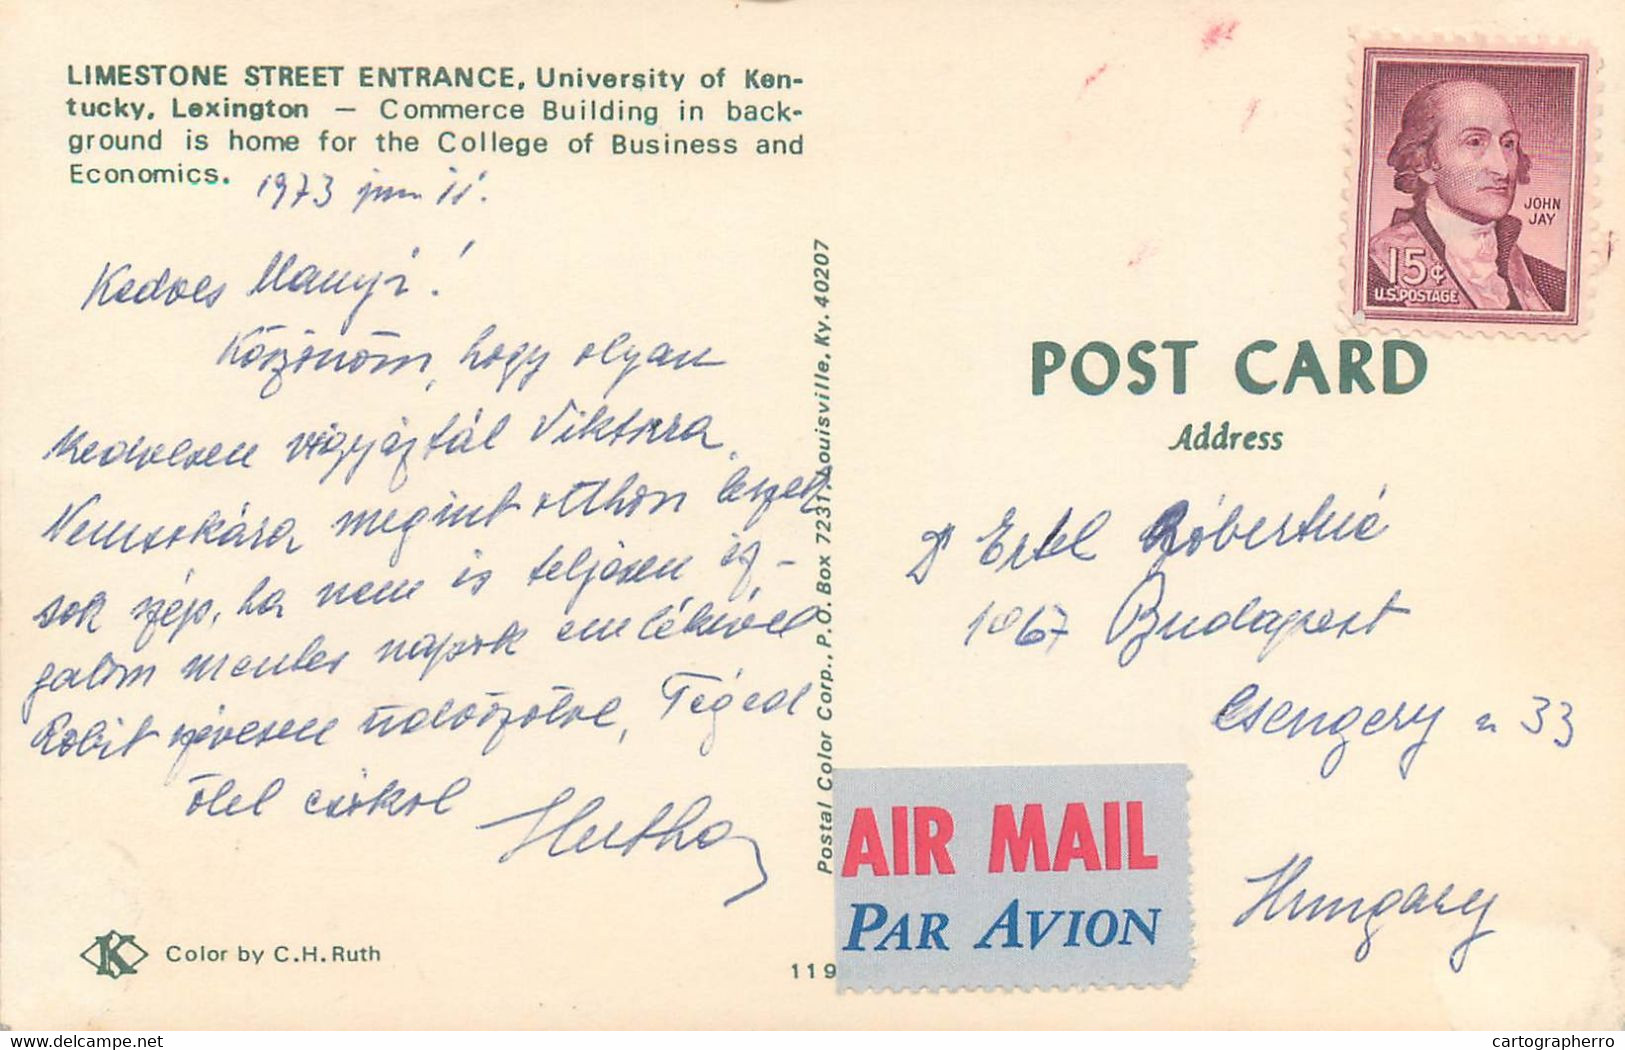 LIMESTONE STREET ENTRANCE, University of Ken-
tucky, Lexington — Commerce Building in back-
ground is home for the College of Business and
Economics.
1973 jun 11.
Kedves Manyi!
Köszönöm, hogy olyan
kedvesen vigyáztál Viktorra.
Nemsokára megint otthon leszek
sok szép, ha nem is teljesen iz-
galom mentes napok emlékével
Robit szívesen üdvözölve, Téged
ölel csókol
K Color by C.H. Ruth
Postal Color Corp., P.O. Box 7231, Louisville, Ky. 40207
119
JOHN
JAY
15¢
U.S. POSTAGE
POST CARD
Address
Dr Ertel Róbertné
1067 Budapest
Csengery u 33
Hungary
AIR MAIL
PAR AVION
www.delcampe.net
cartographerro